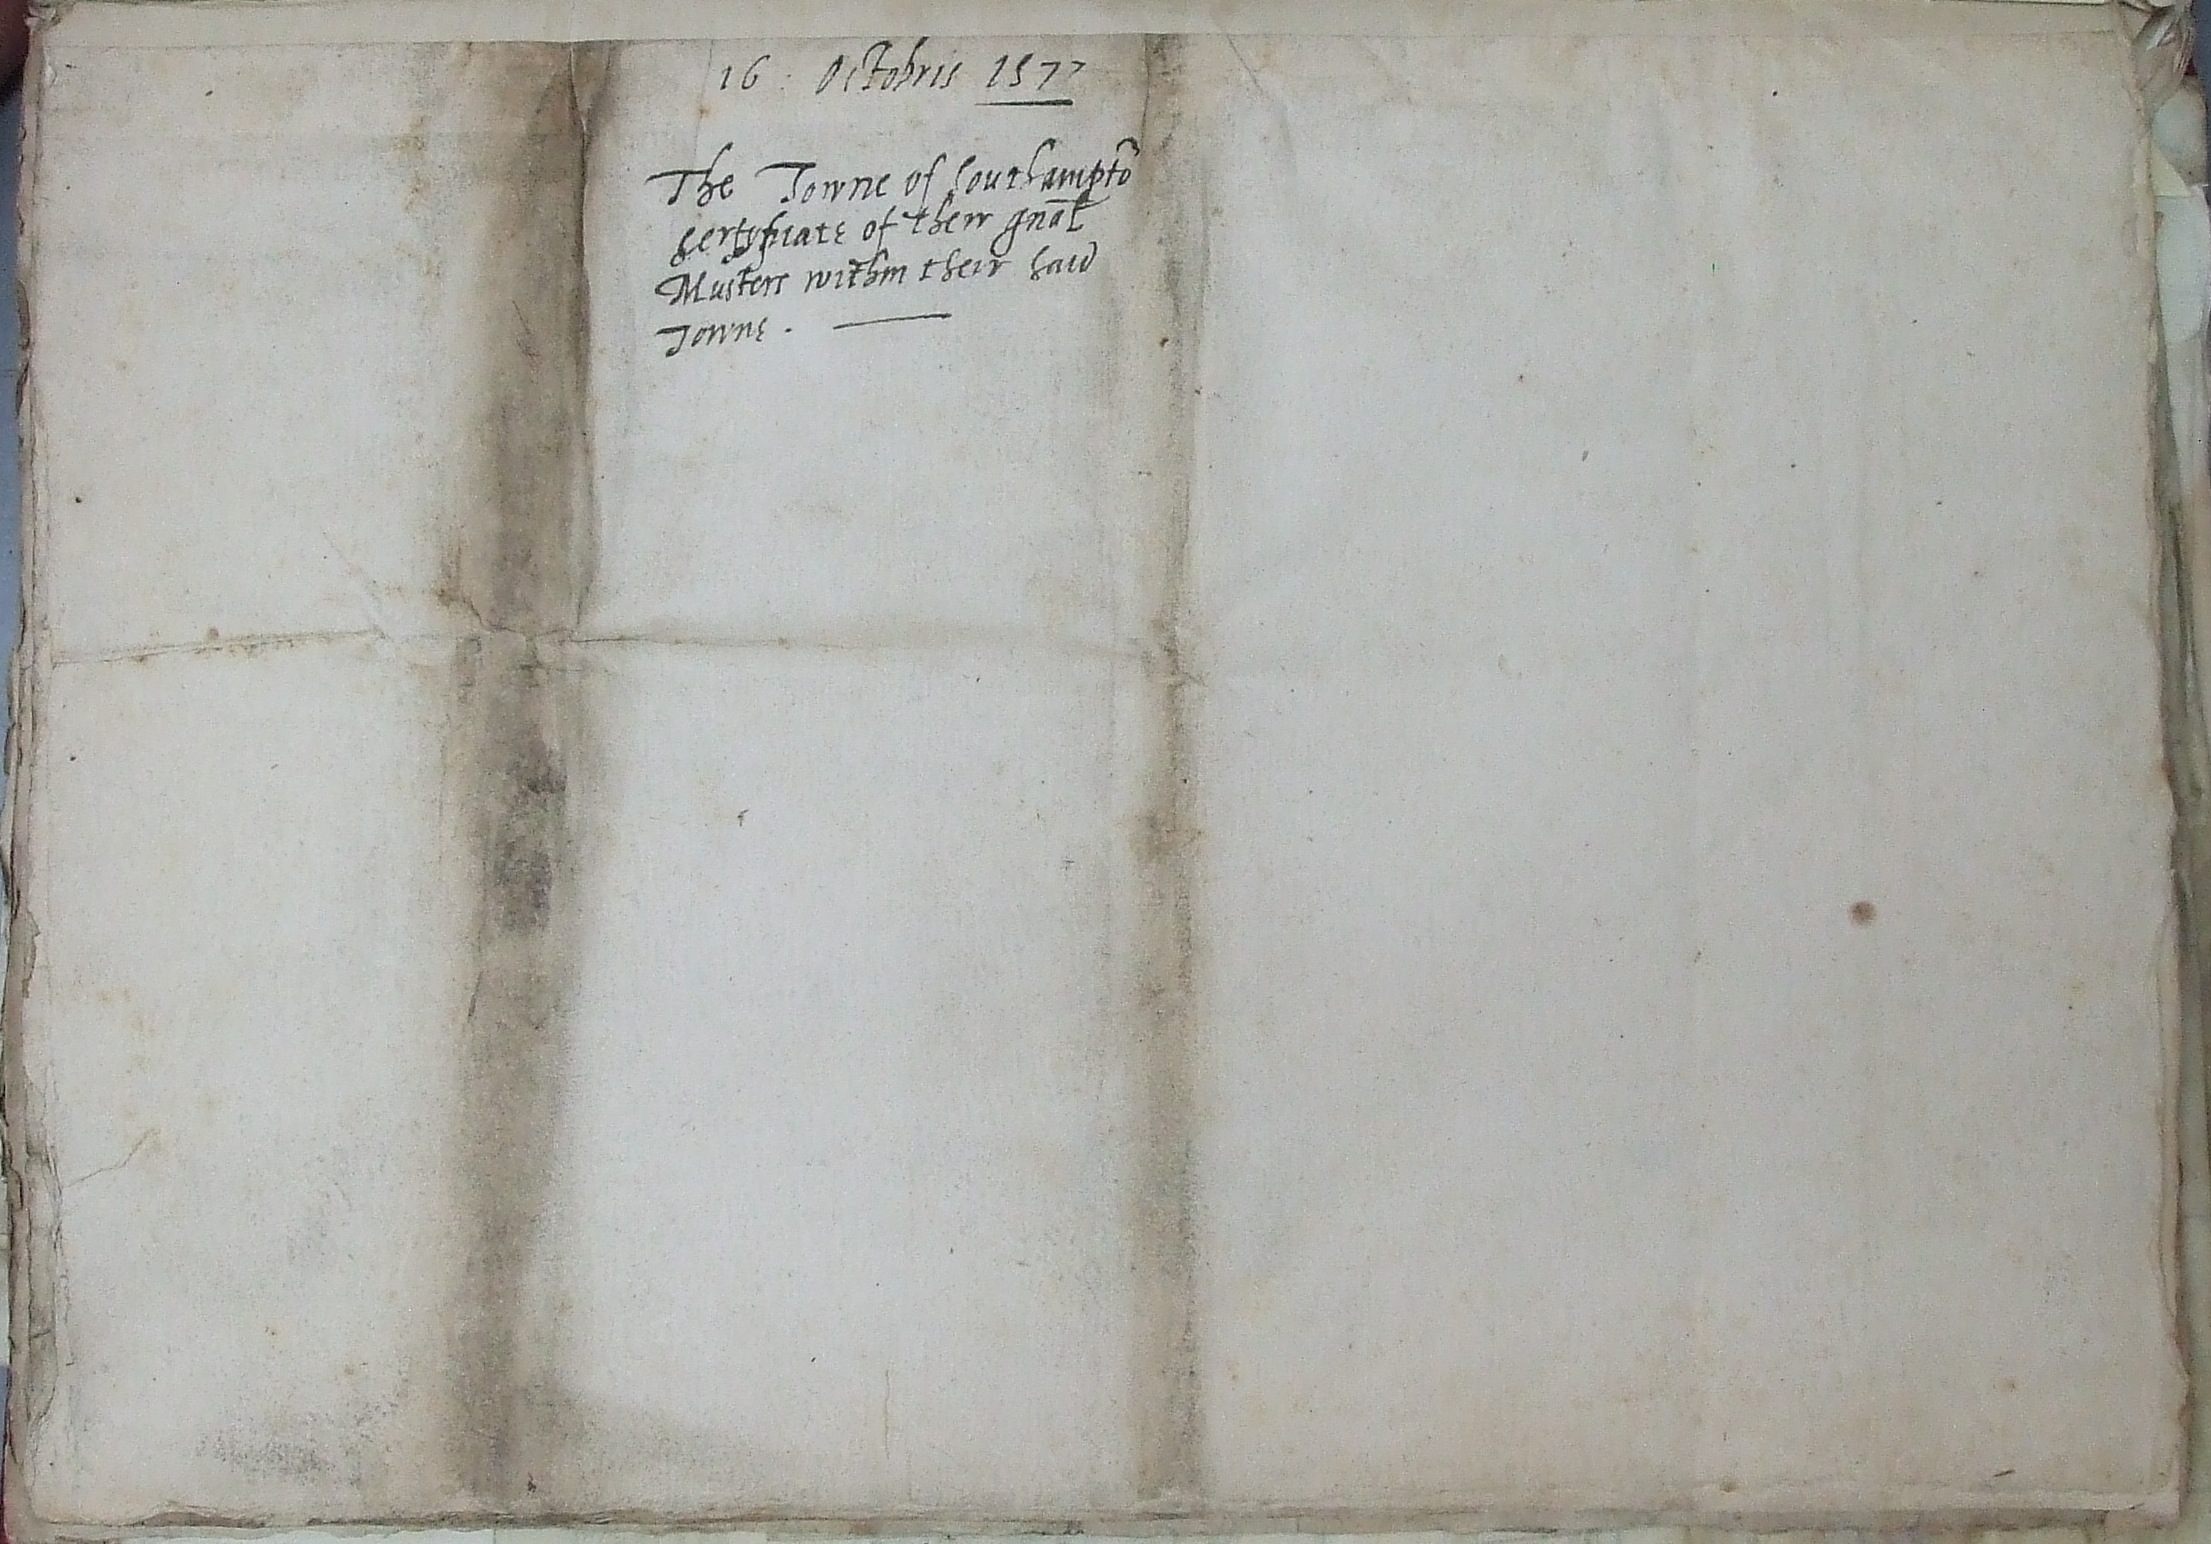 16 . Octobris 1577
The Towne of Southamptõ
certyficate of their gnãl
Musters within their said
Towne .